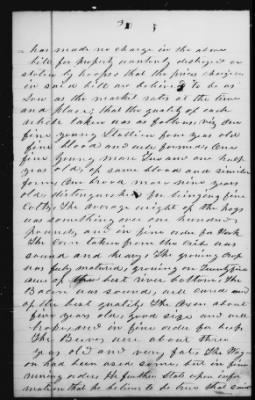 3
has made no charge in the above
bill for property wantonly destroyed or
stolen by troops that the prices charged
in said bill are believed to be as
low as the market rates at the time
and place; that the quality of each
article taken was as follows; viz One
fine young Stallion four year old
fine blood and well formed, One
fine young mare Two and one half
year old, of same blood and similar
form, One brood mare nine years
old distinguished for bringing fine
Colts, The average weight of the hogs
was something over one hundred
pounds, and in fine order for Pork
The Corn taken from the Crib was
sound and heavy, The growing crop
was fully matured, growing on Twenty five
acres of the best river bottom, The
Bacon was sound, side cured and
of the best quality, The Oxen about
five years old, good size and well
broke, and in fine order for beef
The Beeves were about three
years old and very fat, The Wag
on had been used some, but in fine
running order, He further Stats upon infor
mation that he believes to be true that said